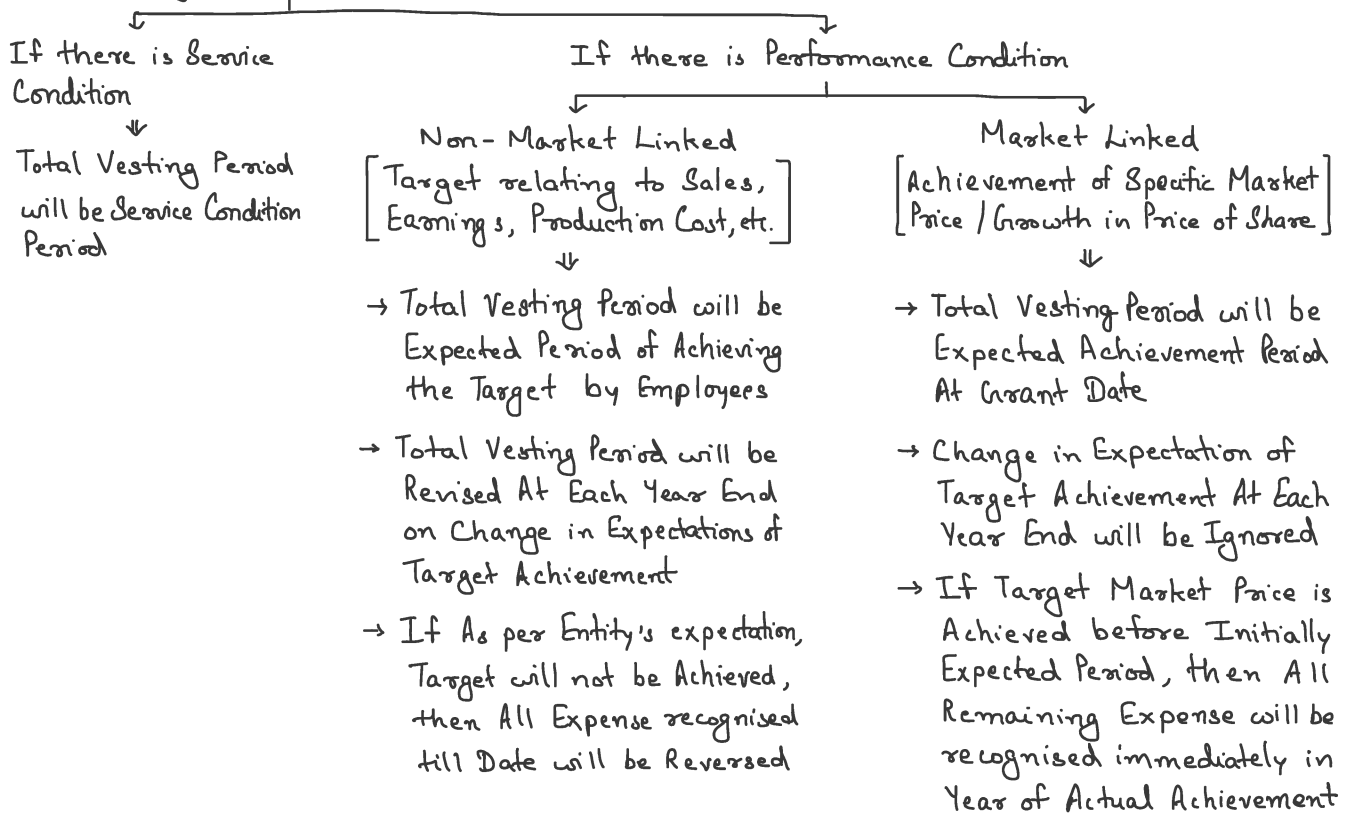 If there is Service
Condition
⇓
Total Vesting Period
will be Service Condition
Period
If there is Performance Condition
Non-Market Linked
[Target relating to Sales,
Earnings, Production Cost, etc.]
⇓
→ Total Vesting Period will be
Expected Period of Achieving
the Target by Employees
→ Total Vesting Period will be
Revised At Each Year End
on Change in Expectations of
Target Achievement
→ If As per Entity's expectation,
Target will not be Achieved,
then All Expense recognised
till Date will be Reversed
Market Linked
[Achievement of Specific Market
Price / Growth in Price of Share]
⇓
→ Total Vesting Period will be
Expected Achievement Period
At Grant Date
→ Change in Expectation of
Target Achievement At Each
Year End will be Ignored
→ If Target Market Price is
Achieved before Initially
Expected Period, then All
Remaining Expense will be
recognised immediately in
Year of Actual Achievement